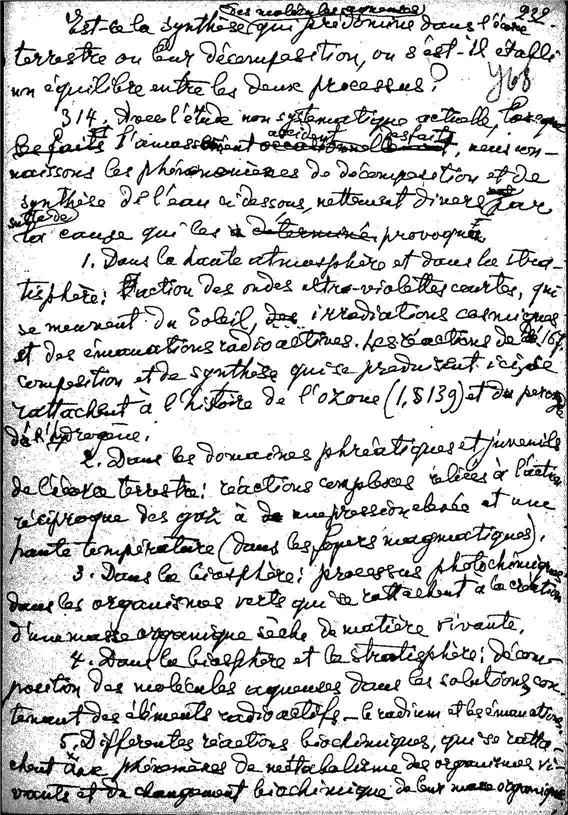 des molécules aqueuses 232.
Est-ce la synthèse qui prédomine dans l'écorce
terrestre ou leur décomposition, ou s'est-il établi
un équilibre entre les deux processus?
314. Avec l'étude non systématique actuelle, lorsque
les faits l'amass accident des faits, nous con-
naissons les phénomènes de décomposition et de
synthèse de l'eau ci-dessous, nettement divers par
suite de
la cause qui les a déterminé provoqué
1. Dans la haute atmosphère et dans la stra-
tisphère: l'action des ondes ultra-violettes courtes, qui
se meuvent du Soleil, des irradiations cosmiques
et des émanations radioactives. Les réactions de dé 167.
composition et de synthèse qui se produisent ici, se
rattachent à l'histoire de l'ozone (1, § 139) et du perox
de l'hydrogène.
2. Dans les domaines phréatiques et juvenils
de l'écorce terrestre: réactions complexes reliées à l'action
réciproque des gaz à de une pression élevée et une
haute température (dans les foyers magmatiques).
3. Dans la biosphère: processus photochimiques
dans les organismes verts qui se rattachent à la création
d'une masse organique sèche de matière vivante.
4. Dans la biosphère et la stratisphère: décom-
position des molécules aqueuses dans les solutions, con-
tenant des éléments radioactifs – le radium et les émanations.
5. Différentes réactions biochimiques, qui se ratta-
chent aux phénomènes de métabolisme des organismes vi-
vants et du changement biochimique de leur masse organique